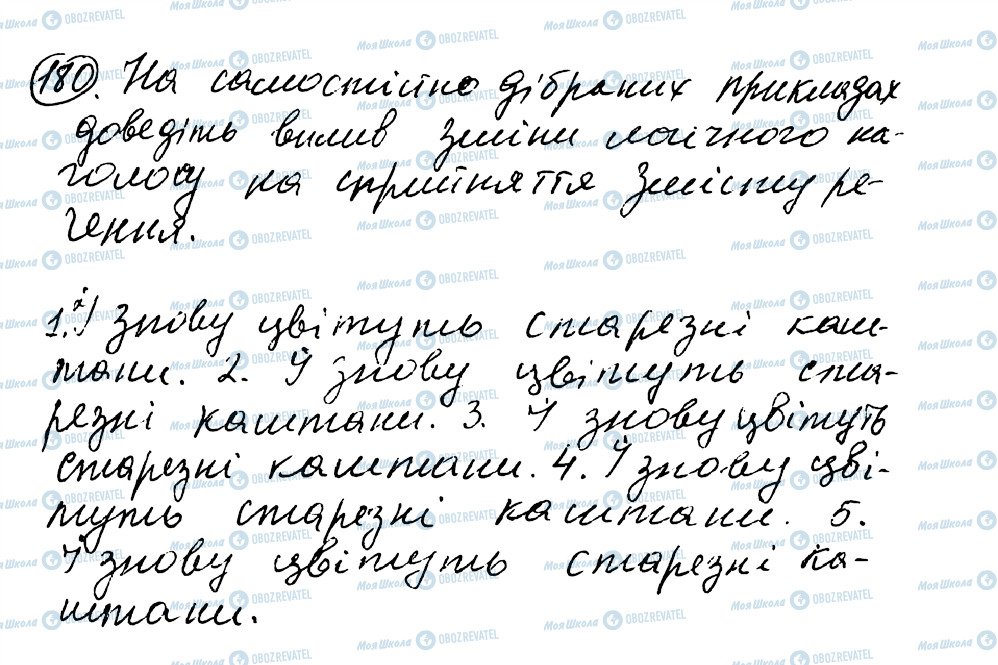 180. На самостійно дібраних прикладах
доведіть вплив зміни логічного на-
голосу на сприйняття змісту ре-
чення.
1. І знову цвітуть старезні каш-
тани. 2. І знову цвітуть ста-
резні каштани. 3. І знову цвітуть
старезні каштани. 4. І знову цві-
туть старезні каштани. 5.
І знову цвітуть старезні ка-
штани.
Моя Школа OBOZREVATEL